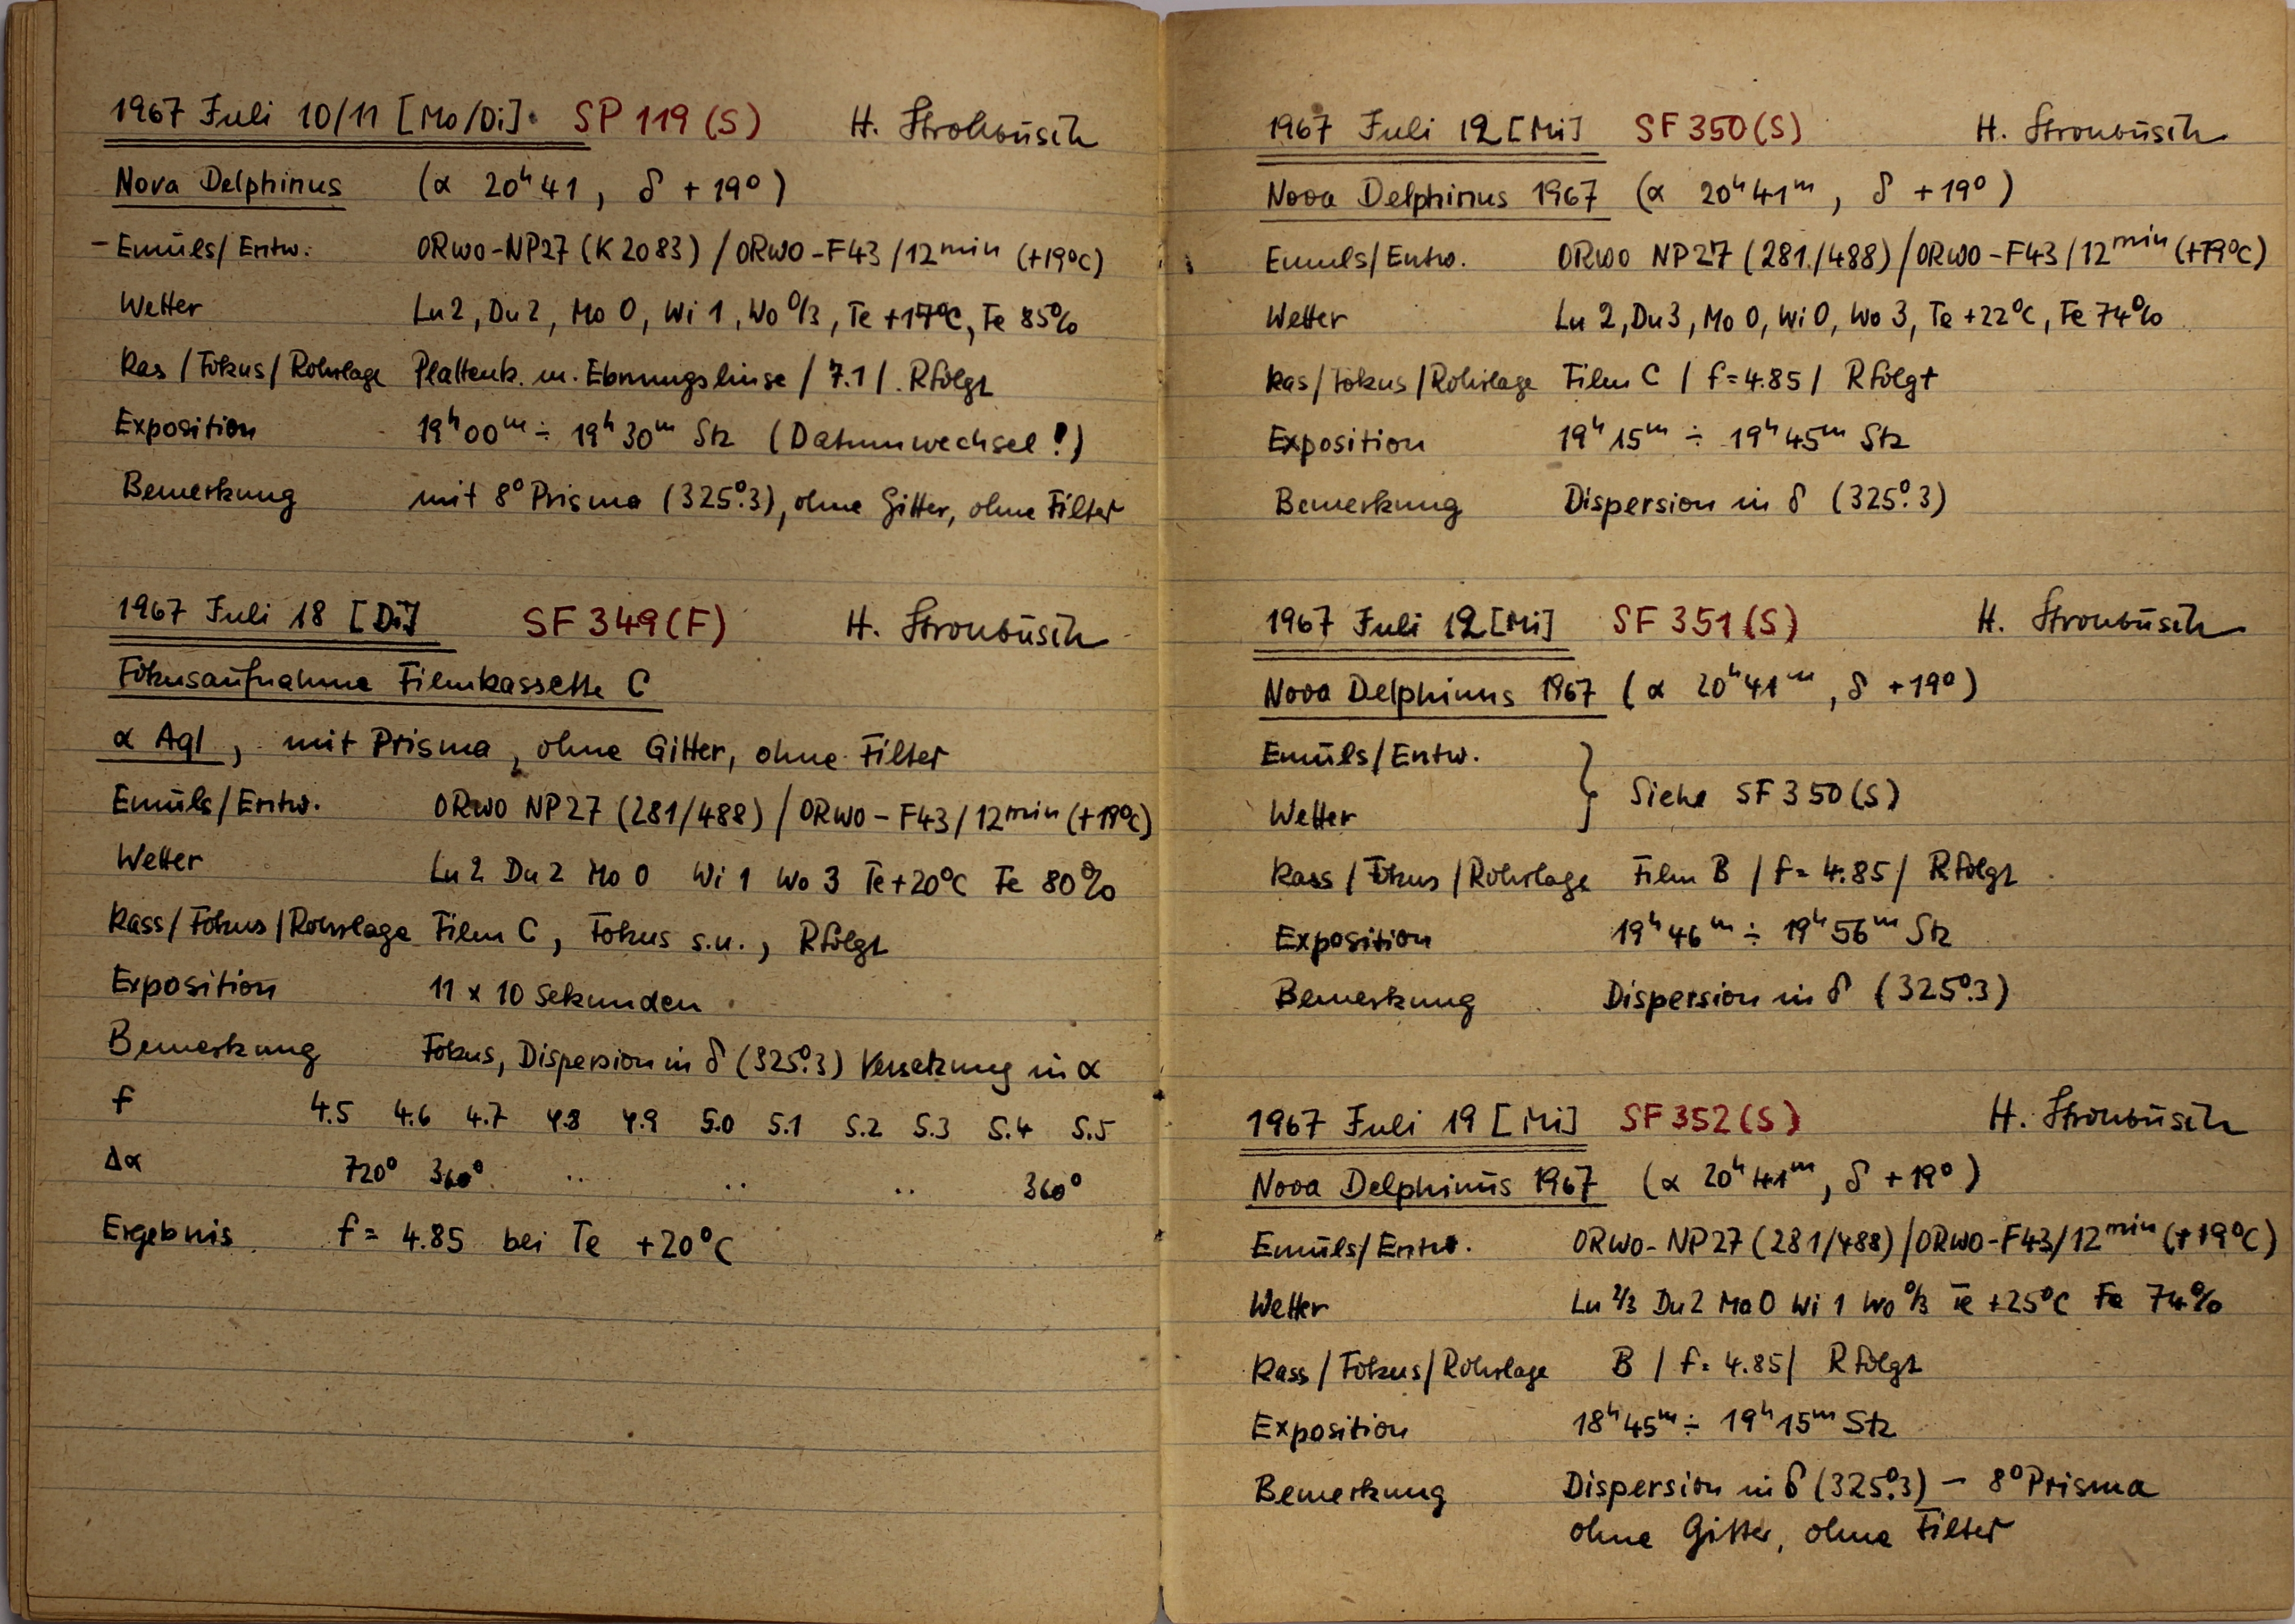 1967 Juli 10/11 [Mo/Di]. SP 119 (S) H. Strohbusch
Nova Delphinus (α 20ʰ41, δ +19°)
– Emuls/Entw. ORWO-NP27 (K 2083) / ORWO-F43 / 12ᵐⁱⁿ (+19°C)
Wetter Lu 2, Du 2, Mo 0, Wi 1, Wo 0/3, Te +17°C, Fe 85%
Kas / Fokus / Rohrlage Plattenk. m. Ebnungslinse / 7.1 / R folgt
Exposition 19ʰ00ᵐ ÷ 19ʰ30ᵐ Stz (Datumwechsel!)
Bemerkung mit 8° Prisma (325°.3), ohne Gitter, ohne Filter
1967 Juli 18 [Di] SF 349 (F) H. Strohbusch
Fokusaufnahme Filmkassette C
α Aql, mit Prisma, ohne Gitter, ohne Filter
Emuls/Entw. ORWO NP27 (281/488) / ORWO – F43 / 12ᵐⁱⁿ (+19°C)
Wetter Lu 2 Du 2 Mo 0 Wi 1 Wo 3 Te +20°C Fe 80%
Kass / Fokus / Rohrlage Film C, Fokus s.u., R folgt
Exposition 11 x 10 Sekunden
Bemerkung Fokus, Dispersion in δ (325°.3) Versetzung in α
f 4.5 4.6 4.7 4.8 4.9 5.0 5.1 5.2 5.3 5.4 5.5
Δα 720° 360° .. .. .. 360°
Ergebnis f = 4.85 bei Te +20°C
1967 Juli 12 [Mi] SF 350 (S) H. Strohbusch
Nova Delphinus 1967 (α 20ʰ41ᵐ, δ +19°)
Emuls/Entw. ORWO NP27 (281/488) / ORWO – F43 / 12ᵐⁱⁿ (+19°C)
Wetter Lu 2, Du 3, Mo 0, Wi 0, Wo 3, Te +22°C, Fe 74%
Kas / Fokus / Rohrlage Film C / f = 4.85 / R folgt
Exposition 19ʰ15ᵐ ÷ 19ʰ45ᵐ Stz
Bemerkung Dispersion in δ (325°.3)
1967 Juli 12 [Mi] SF 351 (S) H. Strohbusch
Nova Delphinus 1967 (α 20ʰ41ᵐ, δ +19°)
Emuls/Entw.
} Siehe SF 350 (S)
Wetter
Kass / Fokus / Rohrlage Film B / f = 4.85 / R folgt
Exposition 19ʰ46ᵐ ÷ 19ʰ56ᵐ Stz
Bemerkung Dispersion in δ (325°.3)
1967 Juli 19 [Mi] SF 352 (S) H. Strohbusch
Nova Delphinus 1967 (α 20ʰ41ᵐ, δ +19°)
Emuls/Entw. ORWO-NP27 (281/488) / ORWO-F43 / 12ᵐⁱⁿ (+19°C)
Wetter Lu 2/3 Du 2 Mo 0 Wi 1 Wo 0/3 Te +25°C Fe 74%
Kass / Fokus / Rohrlage B / f = 4.85 / R folgt
Exposition 18ʰ45ᵐ ÷ 19ʰ15ᵐ Stz
Bemerkung Dispersion in δ (325°.3) – 8° Prisma
ohne Gitter, ohne Filter